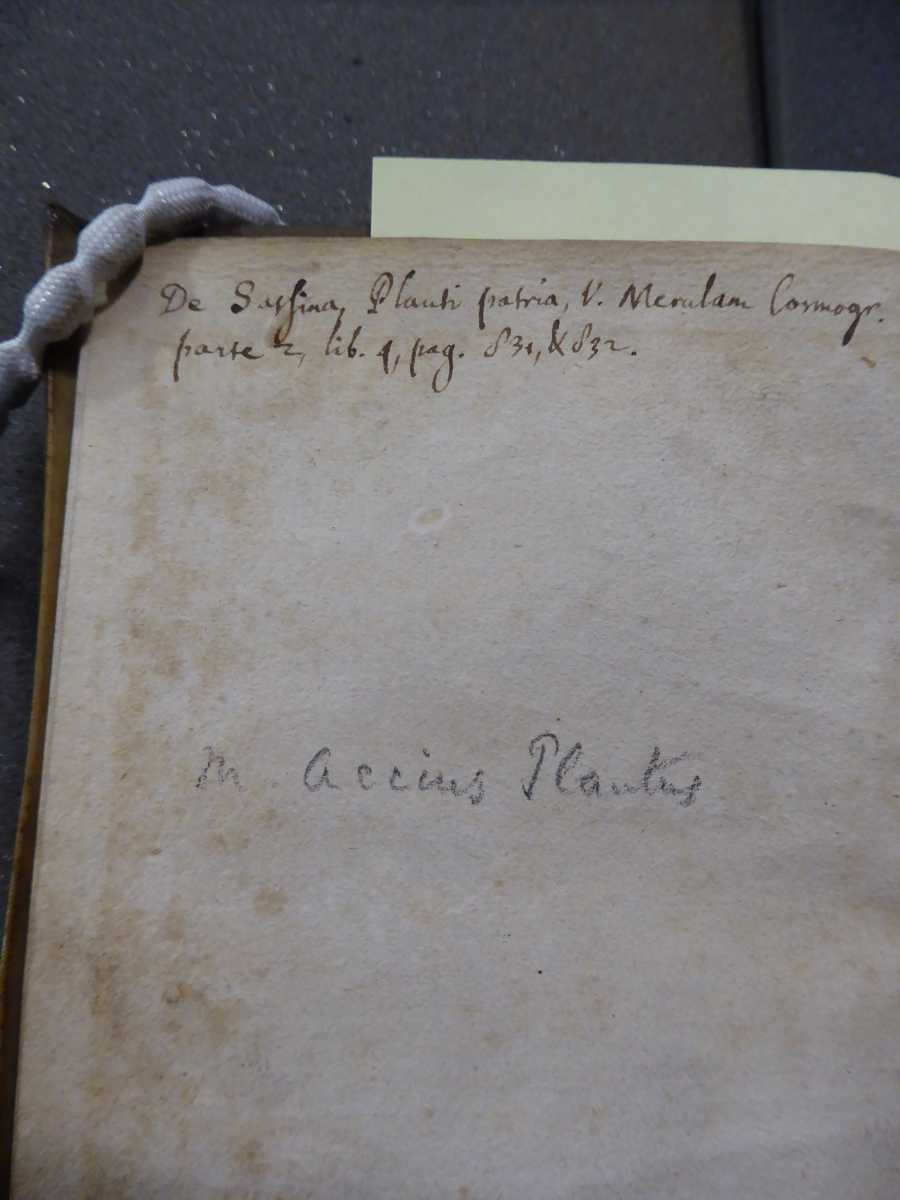 De Sarsina, Plauti patria, V. Merulam Cosmogr.
parte 2, lib. 4, pag. 831, & 832.
M. Accius Plautus